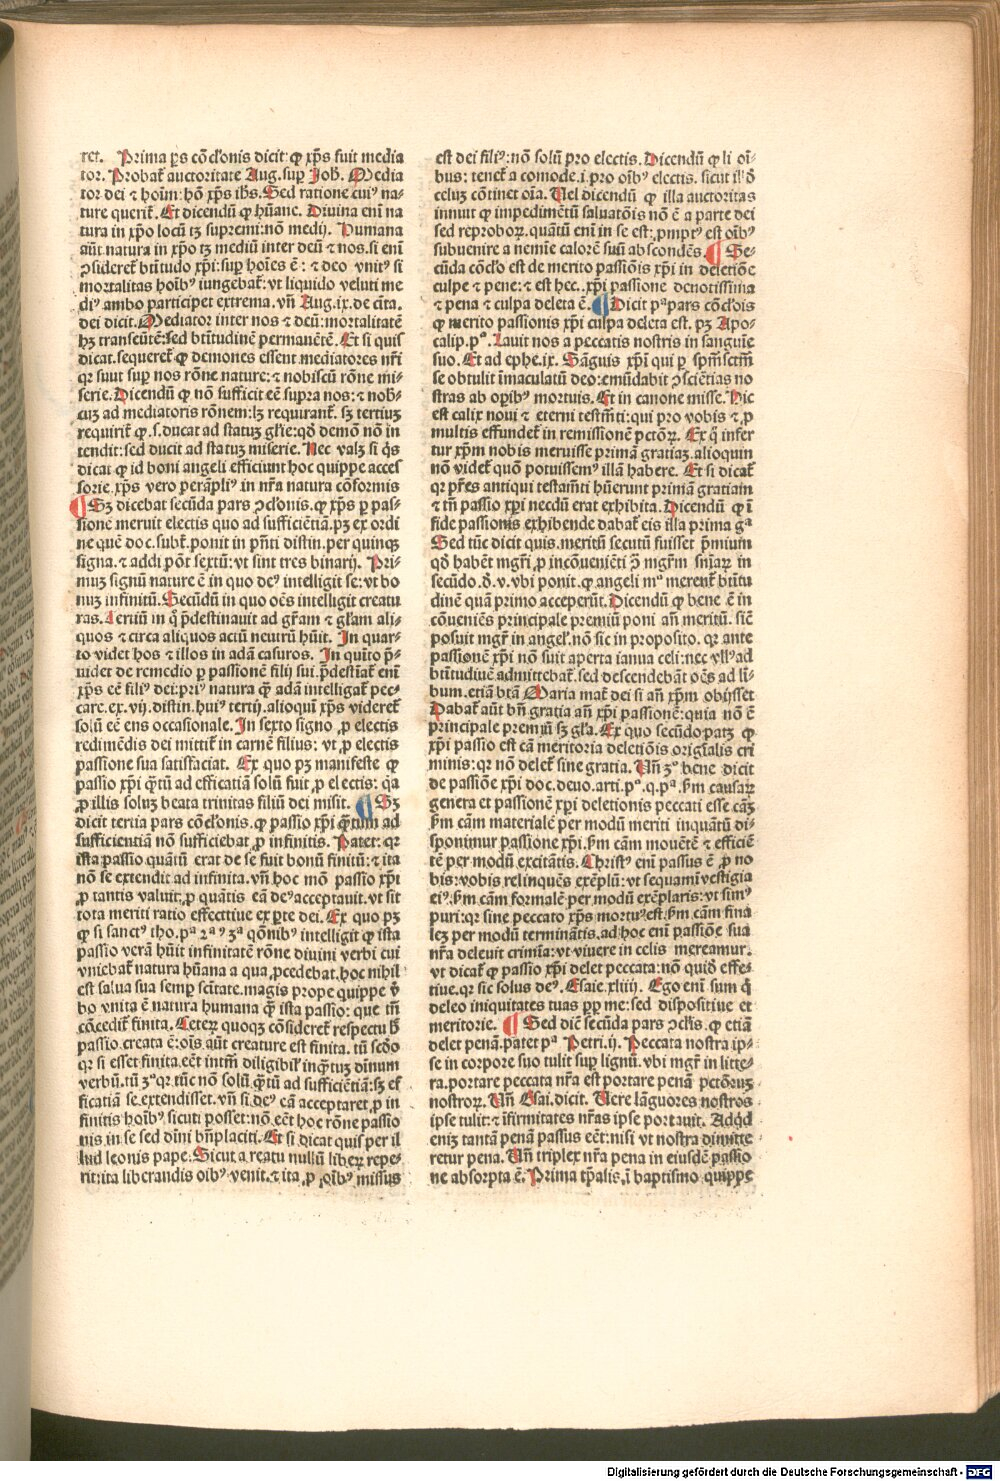 ret. Prima ps cōclonis dicit: ꝙ xp̄s fuit media
tor. Probat auctoritate Aug. sup Joh̄. Media
tor dei ⁊ hoīum: hō xp̄s ih̄s. Sed ratione cuiꝰ na-
ture querit̄. Et dicendū ꝙ hūane. Diuina enī na
tura in xp̄o locū tꝫ supremi: nō medij. Humana
aūt natura in xp̄o tꝫ mediū inter deū ⁊ nos. si enī
ꝯsideret̄ btītudo xp̄i: sup hoīes ē: ⁊ deo vnitꝰ si
mortalitas hoībꝰ iungebat̄: vt liquido veluti me
diꝰ ambo participet extrema. vn̄ Aug. ix. de ciꝛta.
dei dicit. Mediator inter nos ⁊ deū: mortalitatē
hꝫ transeūtē: sed btītudinē permanētē. Et si quis
dicat. sequeret̄ ꝙ demones essent mediatores nr̄i
qꝛ suut sup nos rōne nature: ⁊ nobiscū rōne mi-
serie. Dicendū ꝙ nō sufficit eē supra nos: ⁊ nob-
cuꝫ ad mediatoris rōnem: lꝫ requirant̄. sꝫ tertiuꝫ
requirit̄ ꝙ .s. ducat ad statuꝫ gl̄ie: qd̄ demō nō in
tendit: sed ducit ad statuꝫ miserie. Nec valꝫ si q̄s
dicat ꝙ id boni angeli efficiunt hoc quippe acces
sorie. xp̄s vero perāpliꝰ in nr̄a natura cōformis
¶ Sꝫ dicebat secūda pars ꝯclonis. ꝙ xp̄s ꝑ pas-
sionē meruit electis quo ad sufficiētiā. pꝫ ex ordi
ne quē doc. subt̄. ponit in pn̄ti distin. per quinqꝫ
signa. ⁊ addi pōt sextū: vt sint tres binarij. Pri-
muꝫ signū nature ē in quo deꝰ intelligit se: vt bo
nuꝫ infinitū. Secūdū in quo oēs intelligit creatu
ras. Tertiū in q̄ p̄destinauit ad gr̄am ⁊ gl̄am ali-
quos ⁊ circa aliquos actū neutrū hūit. In quar-
to videt hos ⁊ illos in adā casuros. In quīto p̄-
uidet de remedio ꝑ passionē filij sui. p̄destīat̄ enī
xp̄s eē filiꝰ dei: priꝰ natura ꝙ adā intelligat̄ pec-
care. ex. vij. distin. huiꝰ tertij. alioqui xp̄s videret̄
solū eē ens occasionale. In sexto signo ꝓ electis
redimēdis dei mittit̄ in carnē filius: vt ꝓ electis
passione sua satisfaciat. Ex quo pꝫ manifeste ꝙ
passio xp̄i q̄tū ad efficatiā solū fuit ꝓ electis: q̄a
ꝓ illis soluꝫ beata trinitas filiū dei misit. ¶ Sꝫ
dicit tertia pars cōclonis. ꝙ passio xp̄i q̄tum ad
sufficientiā nō sufficiebat ꝓ infinitis. Patet: qꝛ
ista passio quātū erat de se fuit bonū finitū: ⁊ ita
nō se extendit ad infinita. vn̄ hoc mō passio xp̄i
ꝓ tantis valuit: ꝓ quātis eā deꝰ acceptauit. vt sit
tota meriti ratio effectiue ex ꝑte dei. Ex quo pꝫ
ꝙ si sanctꝰ tho. pᵃ 2ᵃ ⁊ 3ᵃ qōnibꝰ intelligit ꝙ ista
passio verā hūit infinitatē rōne diuini verbi cui
vniebat̄ natura hūana a qua ꝓcedebat. hoc nihil
est salua sua semꝑ sc̄itate. magis prope quippe v̄
bo vnita ē natura humana q̄ ista passio: que tn̄
cōcedit̄ finita. Ceterꝫ quoqꝫ cōsideret̄ respectu h̄
passio. creata ē: oīs aūt creature est finita. tū scd̄o
qꝛ si esset finita. eēt intm̄ diligibil' inq̄tuꝫ diuinum
verbū. tū 3ᵒ qꝛ tūc nō solū q̄tū ad sufficiētiā: sꝫ ef
ficatiā se extendisset. vn̄ si deꝰ eā acceptaret ꝓ in
finitis hoībꝰ sicuti posset: nō eēt hoc rōne passio
nis in se sed diuini bn̄placiti. Et si dicat quis per il
lud leonis pape. Sicut a reatu nullū liberꝫ repe-
rit: ita liberandis oībꝰ venit. ⁊ ita ꝓ oībꝰ missus
est dei filiꝰ: nō solū pro electis. Dicendū ꝙ li oī-
bus: tenet̄ a comode .i. pro oībꝰ electis. sicut ill' d̄
celuꝫ cōtinet oīa. Uel dicendū ꝙ illa auctoritas
innuit ꝙ impedimētū saluatōis nō ē a parte dei
sed reproboꝝ. quātū enī in se est: ꝓmptꝰ est oībꝰ
subuenire a nemīe calorē suū abscondēs. ¶ Se-
cūda cōclo est de merito passiōis xp̄i in deletiōe
culpe ⁊ pene: ⁊ est hec. xp̄i passione deuotissima
⁊ pena ⁊ culpa deleta ē. ¶ Dicit pᵃ pars cōclois
ꝙ merito passionis xp̄i culpa deleta est. pꝫ Apo-
calip. pᵒ. Lauit nos a peccatis nostris in sanguīe
suo. Et ad ephe. ix. Sāguis xp̄i qui ꝑ spm̄sctm̄
se obtulit īmaculatū deo: emūdabit ꝯsciētias no
stras ab oꝑibꝰ mortuis. Et in canone misse. Hic
est calix noui ⁊ eterni testm̄ti: qui pro vobis ⁊ ꝓ
multis effundet̄ in remissionē pctōꝝ. Ex q̄ infer
tur xp̄m nobis meruisse primā gratiaꝫ. alioquin
nō videt̄ quō potuissemꝰ illā habere. Et si dicat̄
qꝛ pr̄es antiqui testam̄ti hūerunt primā gratiam
⁊ tn̄ passio xp̄i necdū erat exhibita. Dicendū ꝙ ī
fide passionis exhibende dabat̄ eis illa prima gᵃ
Sed tūc dicit quis. meritū secutū fuisset p̄mium
qd̄ habēt mgr̄i ꝓ incōueniēti ꝯ̄ mgr̄m sniaꝝ in
secūdo. d̄. v. vbi ponit. ꝙ angeli mᵒ merent̄ btītu
dinē quā primo acceperūt. Dicendū ꝙ bene ē in
cōueniēs principale premiū poni an̄ meritū. sicē
posuit mgr̄ in angel'. nō sic in proposito. qꝛ ante
passionē xp̄i nō fuit aperta ianua celi: nec vllꝰ ad
btītudinē admittebat̄. sed descendebāt oēs ad lī-
bum. etiā btā Maria mat̄ dei si an̄ xp̄m obijsset
Dabat̄ aūt bn̄ gratia an̄ xp̄i passionē: quia nō ē
principale premiū sꝫ gl̄a. Ex quo secūdo patꝫ ꝙ
xp̄i passio est cā meritoria deletiōis origīalis cri
minis: qꝛ nō delet̄ sine gratia. Un̄ 3ᵒ bene dicit
de passiōe xp̄i doc. deuo. arti. pᵃ. q. pᵃ. ẜm causaꝝ
genera et passionē xp̄i deletionis peccati esse cāꝫ
ẜm cām materialē per modū meriti inquātū di-
sponimur passione xp̄i. ẜm cām mouētē ⁊ efficiē
tē per modū excitātis. Christꝰ enī passus ē ꝓ no
bis: vobis relinquēs exēplū: vt sequamī vestigia
eiꝰ. ẜm cām formalē per modū exēplaris: vt simꝰ
puri: qꝛ sine peccato xp̄s mortuꝰ est. ẜm cām fina
leꝫ per modū terminātis. ad hoc enī passiōe sua
nr̄a deleuit crimīa: vt viuere in celis mereamur.
vt dicat̄ ꝙ passio xp̄i delet peccata: nō quid̄ effe-
tiue. qꝛ sic solus deꝰ. Esaie. xliij. Ego enī sum q̄
deleo iniquitates tuas ꝓpꝑ me: sed dispositiue et
meritorie. ¶ Sed diē secūda pars ꝯcl'is. ꝙ etiā
delet penā. patet pᵃ Petri. ij. Peccata nostra ip-
se in corpore suo tulit sup lignū. vbi mgr̄ in litte-
ra. portare peccata nr̄a est portare penā pctōruꝫ
nostroꝝ. Un̄ Esai. dicit. Uere lāguores nostros
ipse tulit: ⁊ īfirmitates nr̄as ipse portauit. Adqd̄
eniꝫ tantā penā passus eēt: nisi vt nostra dimitte
retur pena. Un̄ triplex nr̄a pena in eiusdē passio
ne absorpta ē. Prima tp̄alis. ī baptismo quippe
Digitalisierung gefördert durch die Deutsche Forschungsgemeinschaft - DFG